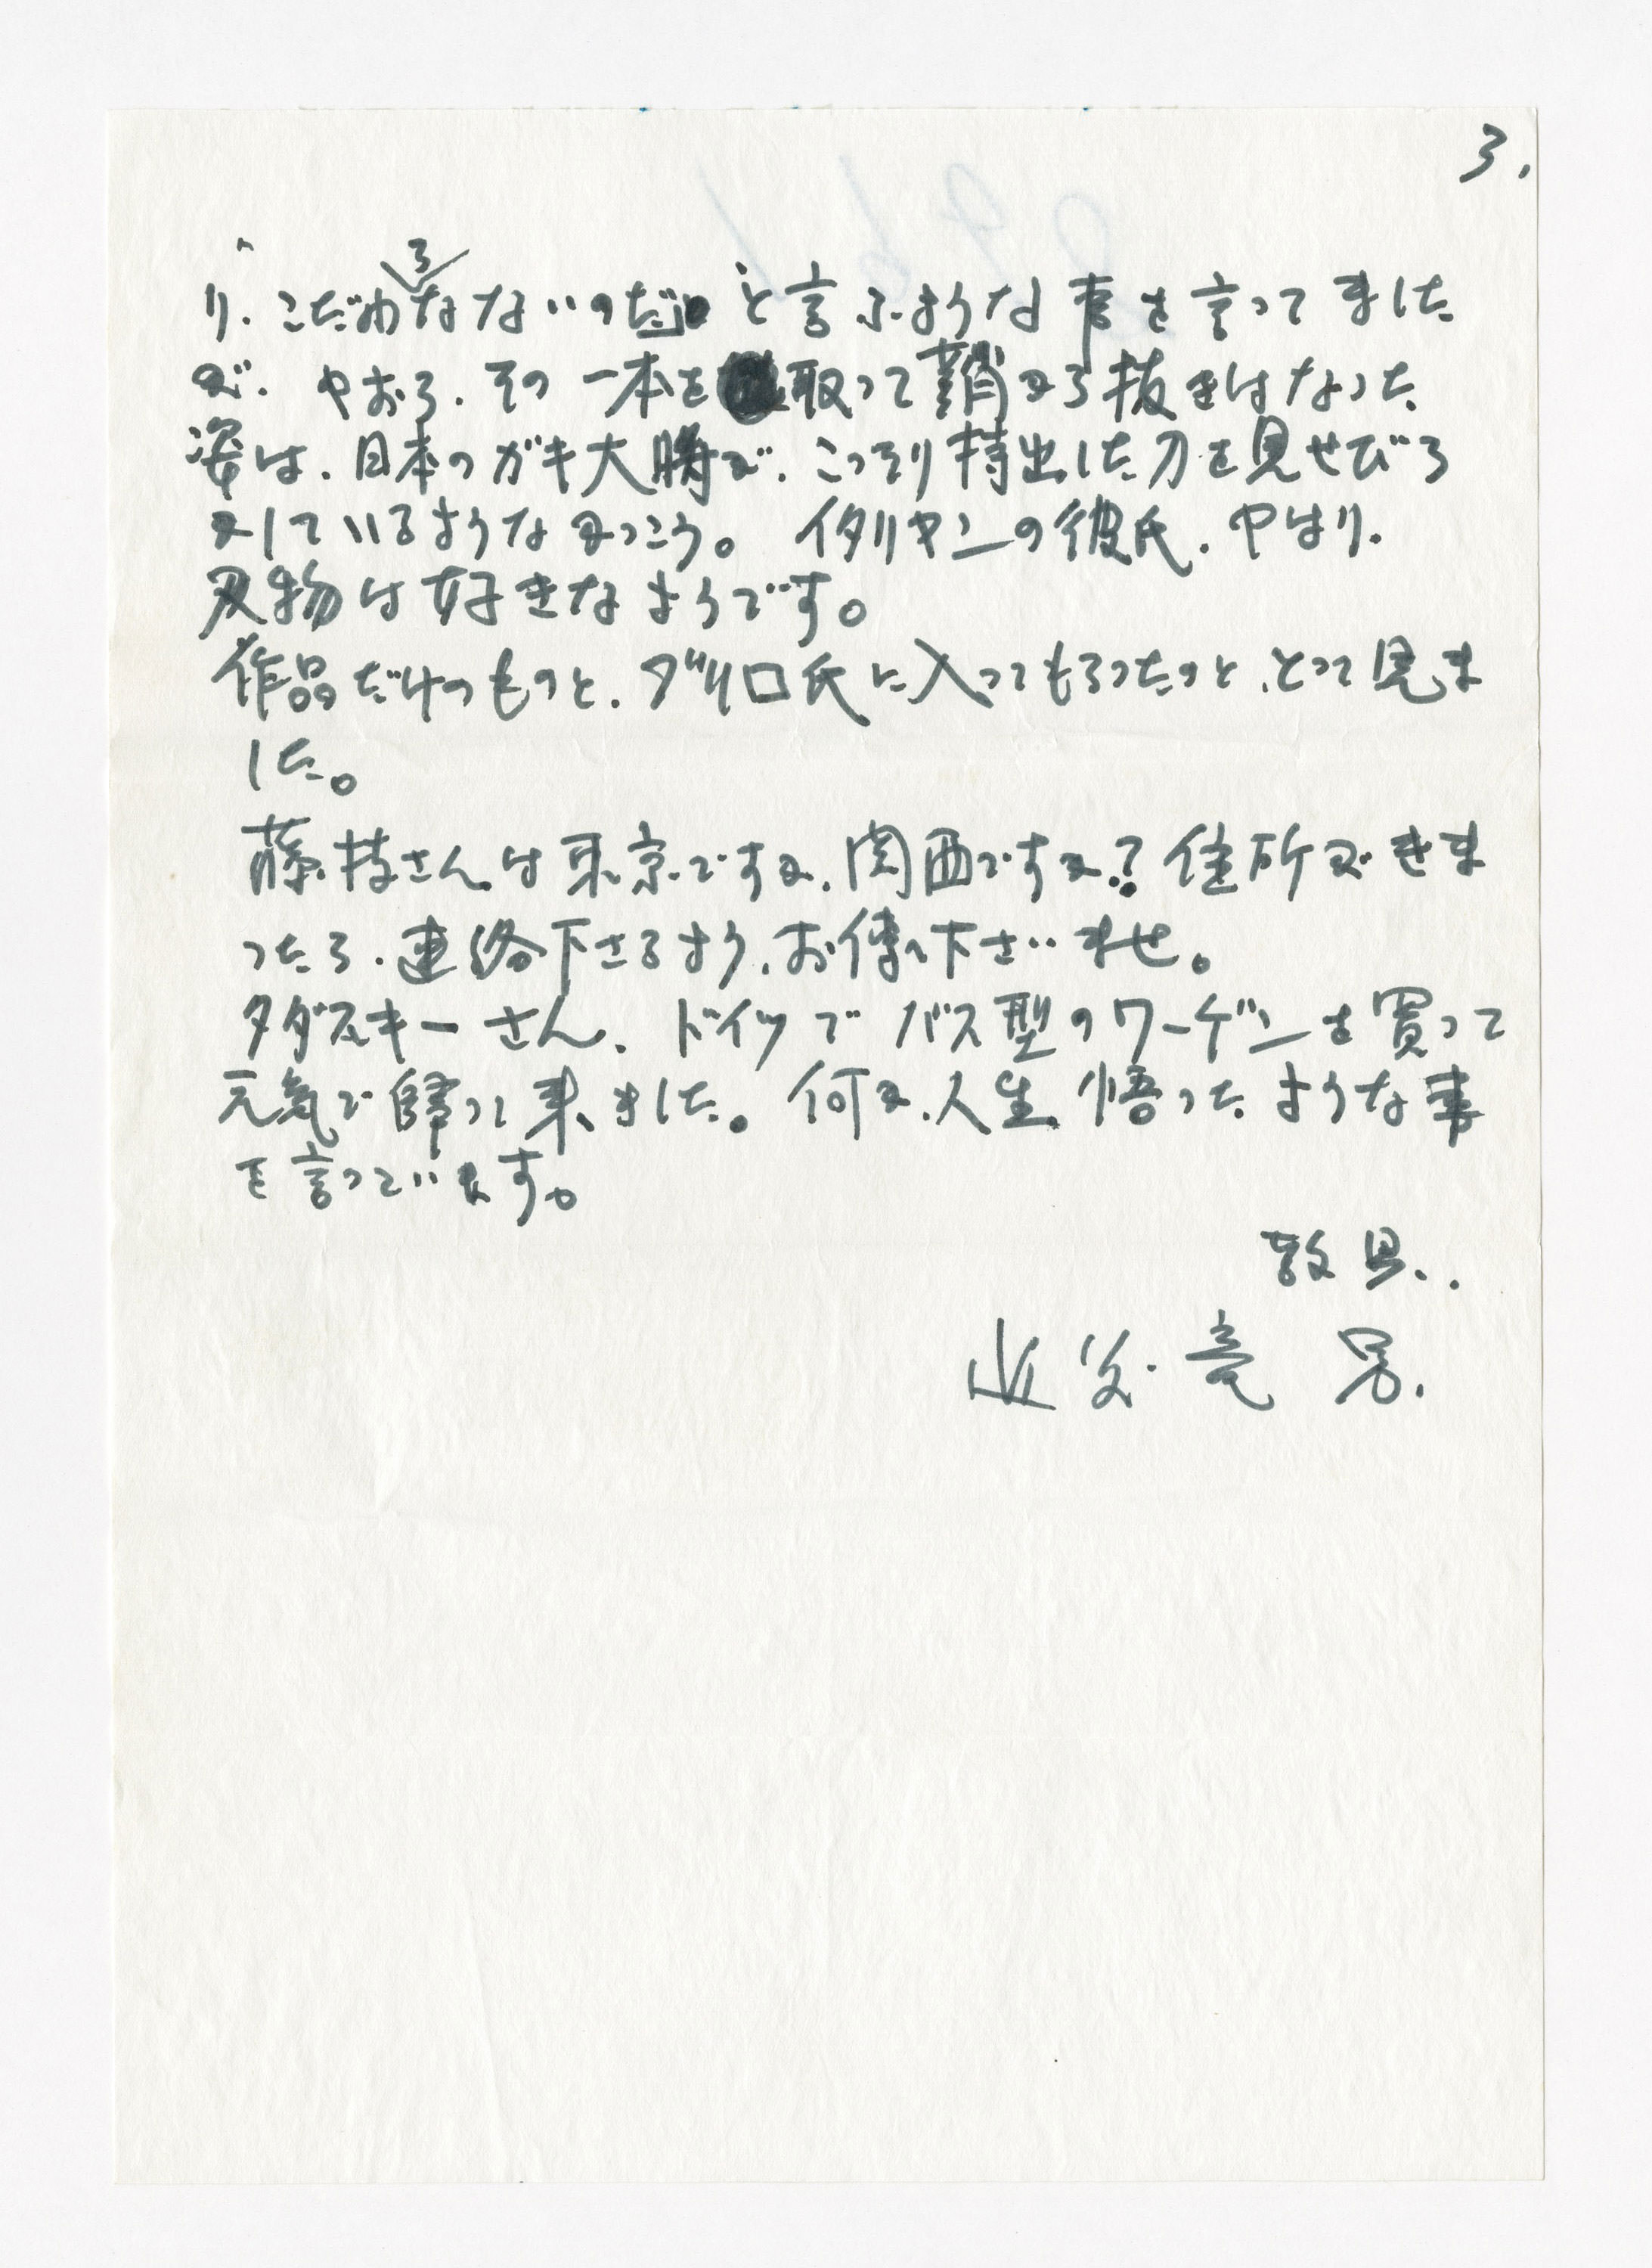 3.
り、こだわらなないのだ」と言ふような事を言ってました
が、やおら、その一本を取って鞘から抜きはなった
姿は、日本のガキ大将が、こっそり持出した刀を見せびら
かしているようなかっこう。イタリヤンの彼氏、やはり、
刃物は好きなようです。
作品だけのものと、ダリロ氏に入ってもらったのと、とって見ま
した。
藤枝さんは東京ですか、関西ですか?住所がきま
ったら、連絡下さるよう、お傳へ下さいませ。
タダスキーさん、ドイツでバス型のワーゲンを買って
元気で歸って来ました。何か、人生、悟ったような事
を言っています。
敬具..
近父竜男.